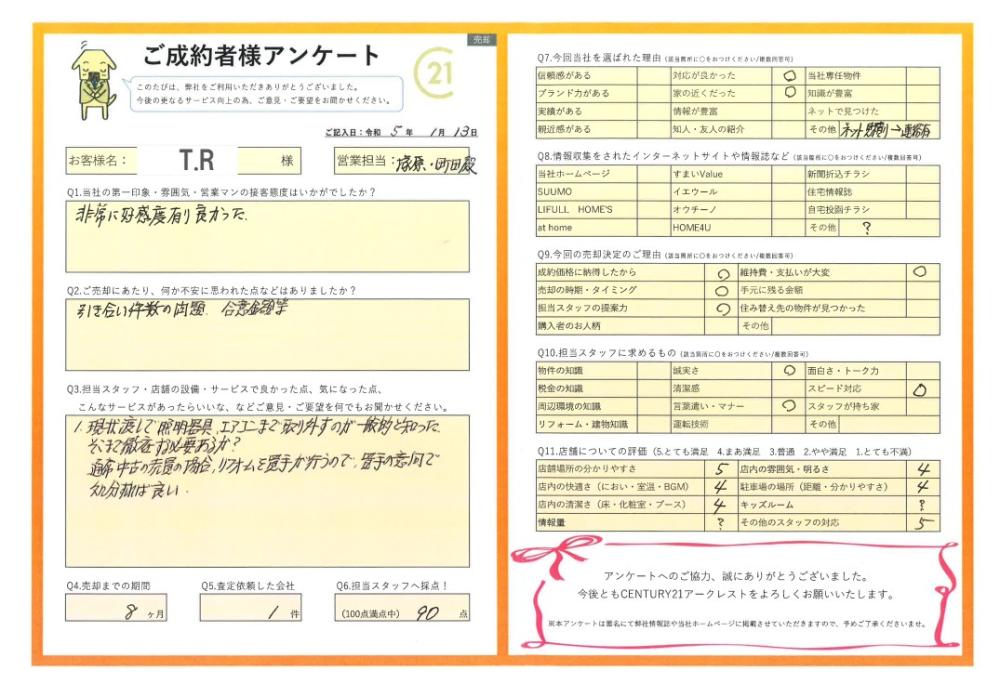 売却
ご成約者様アンケート
21
このたびは、弊社をご利用いただきありがとうございました。
今後の更なるサービス向上の為、ご意見・ご要望をお聞かせください。
ご記入日：令和 5年 1月 13日
お客様名： T.R 様
営業担当： 原・町田殿
Q1.当社の第一印象・雰囲気・営業マンの接客態度はいかがでしたか？
非常に好感度有り良かった.
Q2.ご売却にあたり、何か不安に思われた点などはありましたか？
引き合い件数の問題. 合意金額等
Q3.担当スタッフ・店舗の設備・サービスで良かった点、気になった点、
こんなサービスがあったらいいな、などご意見・ご要望を何でもお聞かせください。
1. 現状渡しで照明器具、エアコンまで取り外すのが一般的と知った.
そこまで徹底する必要あるか?
通常中古の売買の場合、リフォームを買手が行うので、買手の意向で
処分すれば良い.
Q4.売却までの期間
8 ヶ月
Q5.査定依頼した会社
1 件
Q6.担当スタッフへ採点！
(100点満点中) 90 点
Q7.今回当社を選ばれた理由（該当箇所に〇をおつけください/複数回答可）
信頼感がある 対応が良かった 〇 当社専任物件
ブランド力がある 家の近くだった 〇 知識が豊富
実績がある 情報が豊富 ネットで見つけた
親近感がある 知人・友人の紹介 その他 ネット見積り→連絡有
Q8.情報収集をされたインターネットサイトや情報誌など（該当箇所に〇をおつけください/複数回答可）
当社ホームページ すまいValue 新聞折込チラシ
SUUMO イエウール 住宅情報誌
LIFULL HOME'S オウチーノ 自宅投函チラシ
at home HOME4U その他 ?
Q9.今回の売却決定のご理由（該当箇所に〇をおつけください/複数回答可）
成約価格に納得したから 〇 維持費・支払いが大変 〇
売却の時期・タイミング 〇 手元に残る金額
担当スタッフの提案力 〇 住み替え先の物件が見つかった
購入者のお人柄 その他
Q10.担当スタッフに求めるもの（該当箇所に〇をおつけください/複数回答可）
物件の知識 誠実さ 〇 面白さ・トーク力
税金の知識 清潔感 スピード対応 〇
周辺環境の知識 言葉遣い・マナー 〇 スタッフが持ち家
リフォーム・建物知識 運転技術 その他
Q11.店舗についての評価（5.とても満足 4.まあ満足 3.普通 2.やや満足 1.とても不満）
店舗場所の分かりやすさ 5 店内の雰囲気・明るさ 4
店内の快適さ（におい・室温・BGM） 4 駐車場の場所（距離・分かりやすさ） 4
店内の清潔さ（床・化粧室・ブース） 4 キッズルーム ?
情報量 ? その他のスタッフの対応 5
アンケートへのご協力、誠にありがとうございました。
今後ともCENTURY21アークレストをよろしくお願いいたします。
※本アンケートは匿名にて弊社情報誌や当社ホームページに掲載させていただきますので、予めご了承くださいませ。